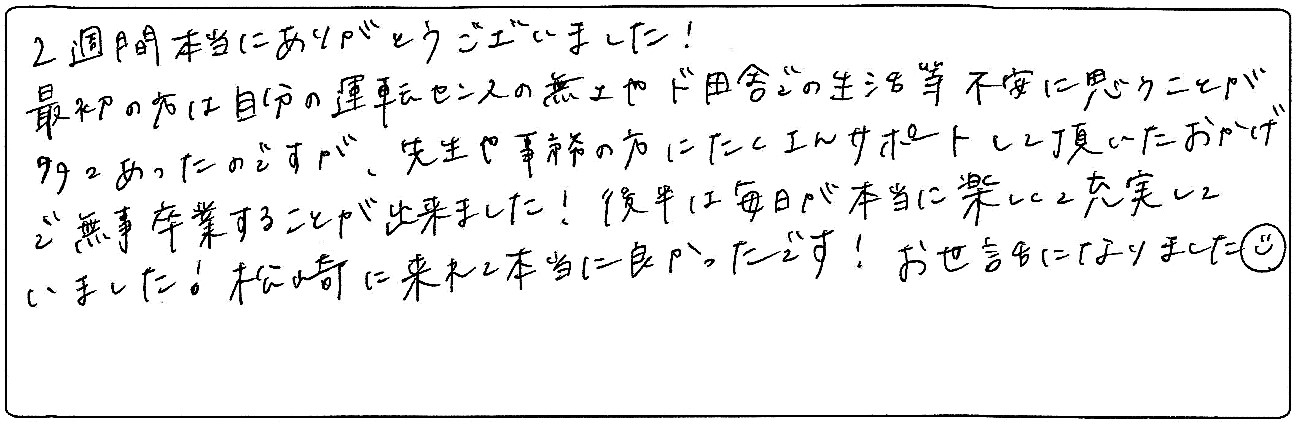 2週間本当にありがとうございました!
最初の方は自分の運転センスの無さやド田舎での生活等 不安に思うことが
多々あったのですが、先生や事務の方にたくさんサポートして頂いたおかげ
で無事卒業することが出来ました! 後半は毎日が本当に楽しくて充実して
いました! 松崎に来れて本当に良かったです! お世話になりました☺